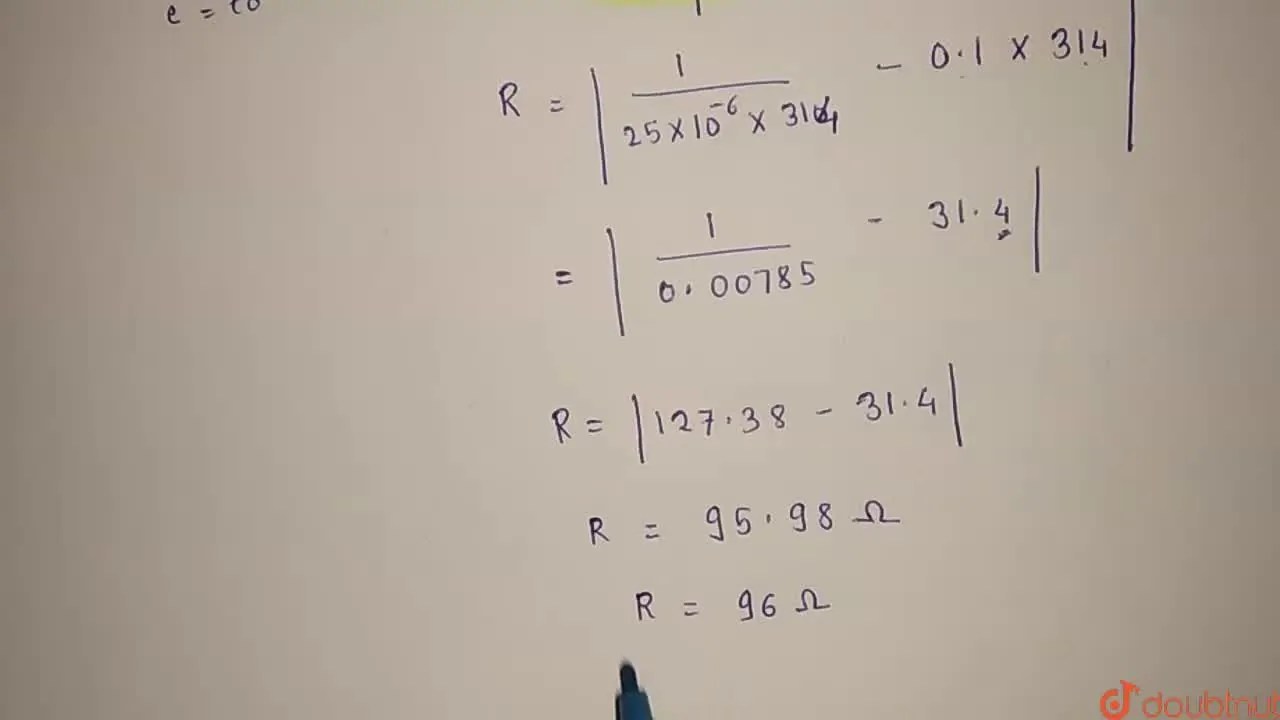 e =
R = | 1 / 25 × 10⁻⁶ × 314 - 0.1 × 314 |
= | 1 / 0.00785 - 31.4 |
R = | 127.38 - 31.4 |
R = 95.98 Ω
R = 96 Ω
doubtnut